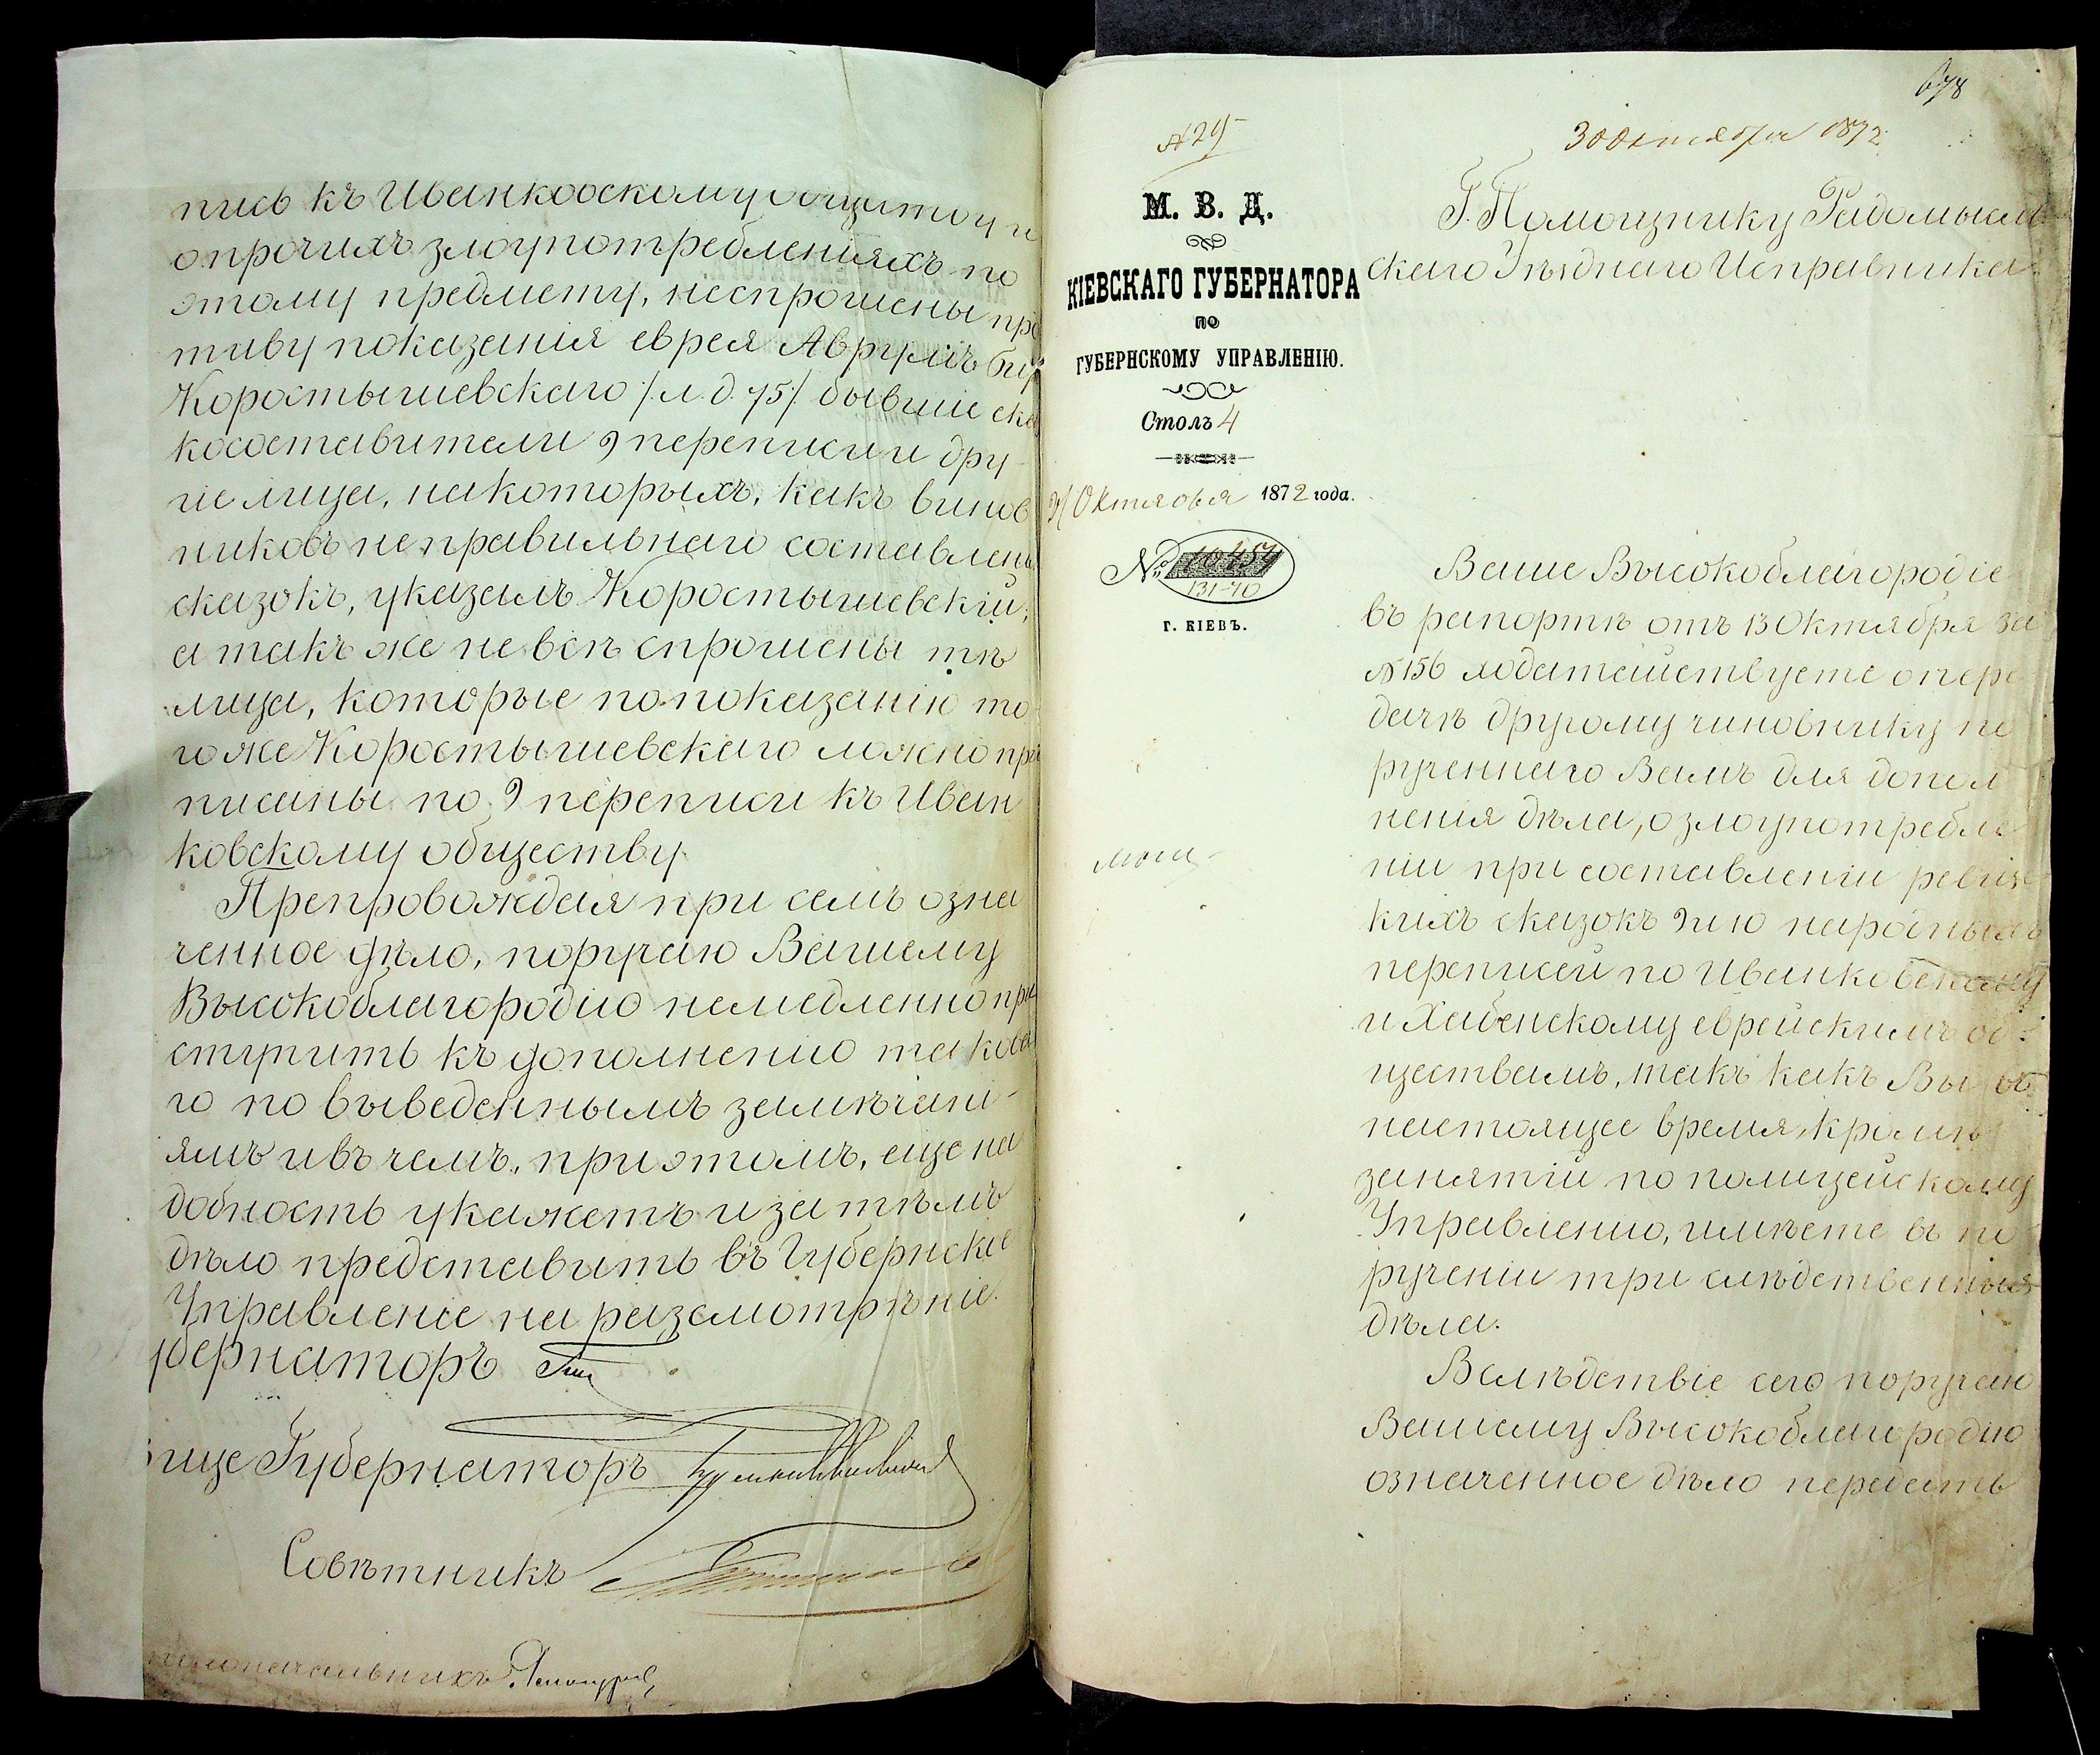 пись къ Иванковскому обществу и
о прочихъ злоупотребленіяхъ по
этому предмету, неспрошены про
тиву показанія еврея Аврумъ
Коростышевскаго /л. д. 75/ бывшіе ска
косоставители 9 переписи и дру
гіе лица, на которыхъ, какъ винов
никовъ неправильнаго составленія
сказокъ, указалъ Коростышевскій,
а такъ же не всѣ спрошены тѣ
лица, которые по показанію то
гоже Коростышевскаго ложно при
писаны по 9 переписи къ Иван
ковскому обществу.
Препровождая при семъ озна
ченное дѣло, поручаю Вашему
Высокоблагородію немедленно при
ступить къ дополненію таково
го по выведеннымъ замѣчані-
ямъ и въ чемъ, при этомъ, еще на
добность укажетъ и за тѣмъ
дѣло представить въ Губернское
Управленіе на разсмотрѣніе.
убернаторъ
ице Губернаторъ
Совѣтникъ
678
№ 29
30 Октября 1872
М. В. Д.
КІЕВСКАГО ГУБЕРНАТОРА
ПО
ГУБЕРНСКОМУ УПРАВЛЕНІЮ.
Столъ 4
Октября 1872 года.
№ 10454
131-40
Г. КІЕВЪ.
Г. Помощнику Радомысль
скаго Уѣзднаго Исправника
Ваше Высокоблагородіе
въ рапортѣ отъ 13 Октября за
№ 156 ходатайствуете о пере
дачѣ другому чиновнику по
рученнаго Вамъ для допол
ненія дѣла, о злоупотребле
ніи при составленіи ревизс
кихъ сказокъ 9 и 10 народныхъ
переписей по Иванковскому
и Хабенскому еврейскимъ об-
ществамъ, такъ какъ Вы въ
настоящее время, кромѣ
занятій по полицейскому
Управленію, имѣете въ по
рученіи три слѣдственныя
дѣла.
Вслѣдствіе сего поручаю
Вашему Высокоблагородію
означенное дѣло передать